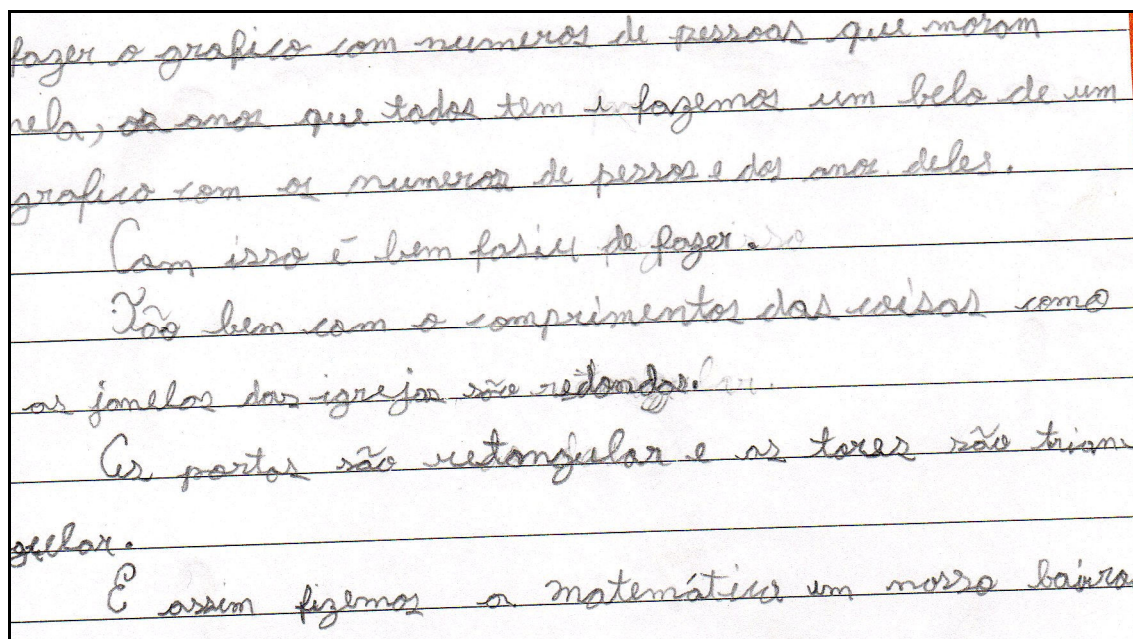 fazer o grafico com numeros de pessoas que moram
nela, os anos que todos tem e fazemos um belo de um
grafico com os numeros de pessos e dos anos deles.
Com isso é bem fasiu de fazer.
Tão bem com o comprimentos das coisas como
as janelas das igrejas são redondas.
As portas são retangular e as tores são trian
gular.
E assim fizemos a matemática em nosso bairo